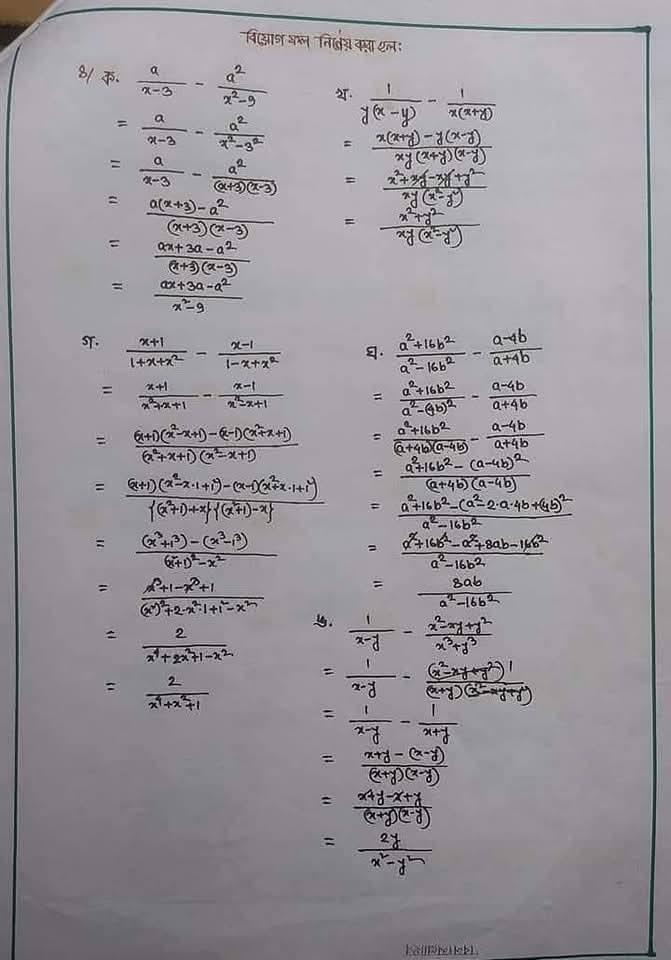 বিয়োগ ফল নির্ণয় করা হল:
৪/ ক. a/(x-3) - a²/(x²-9)
= a/(x-3) - a²/(x²-3²)
= a/(x-3) - a²/((x+3)(x-3))
= (a(x+3)-a²)/((x+3)(x-3))
= (ax+3a-a²)/((x+3)(x-3))
= (ax+3a-a²)/(x²-9)
খ. 1/(y(x-y)) - 1/(x(x+y))
= (x(x+y)-y(x-y))/(xy(x+y)(x-y))
= (x²+xy-xy+y²)/(xy(x²-y²))
= (x²+y²)/(xy(x²-y²))
গ. (x+1)/(1+x+x²) - (x-1)/(1-x+x²)
= (x+1)/(x²+x+1) - (x-1)/(x²-x+1)
= ((x+1)(x²-x+1)-(x-1)(x²+x+1))/((x²+x+1)(x²-x+1))
= ((x+1)(x²-x·1+1²)-(x-1)(x²+x·1+1²))/({(x²+1)+x}{(x²+1)-x})
= ((x³+1³)-(x³-1³))/((x²+1)²-x²)
= (x³+1-x³+1)/((x²)²+2·x²·1+1²-x²)
= 2/(x⁴+2x²+1-x²)
= 2/(x⁴+x²+1)
ঘ. (a²+16b²)/(a²-16b²) - (a-4b)/(a+4b)
= (a²+16b²)/(a²-(4b)²) - (a-4b)/(a+4b)
= (a²+16b²)/((a+4b)(a-4b)) - (a-4b)/(a+4b)
= (a²+16b²-(a-4b)²)/((a+4b)(a-4b))
= (a²+16b²-(a²-2·a·4b+(4b)²)/(a²-16b²)
= (a²+16b²-a²+8ab-16b²)/(a²-16b²)
= 8ab/(a²-16b²)
ঙ. 1/(x-y) - (x²-xy+y²)/(x³+y³)
= 1/(x-y) - (x²-xy+y²) 1/((x+y)(x²-xy+y²))
= 1/(x-y) - 1/(x+y)
= (x+y-(x-y))/((x+y)(x-y))
= (x+y-x+y)/((x+y)(x-y))
= 2y/(x²-y²)